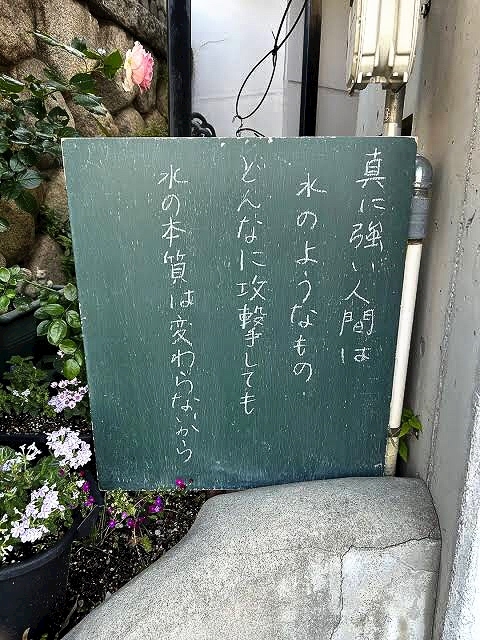 真に強い人間は
水のようなもの
どんなに攻撃しても
水の本質は変わらないから